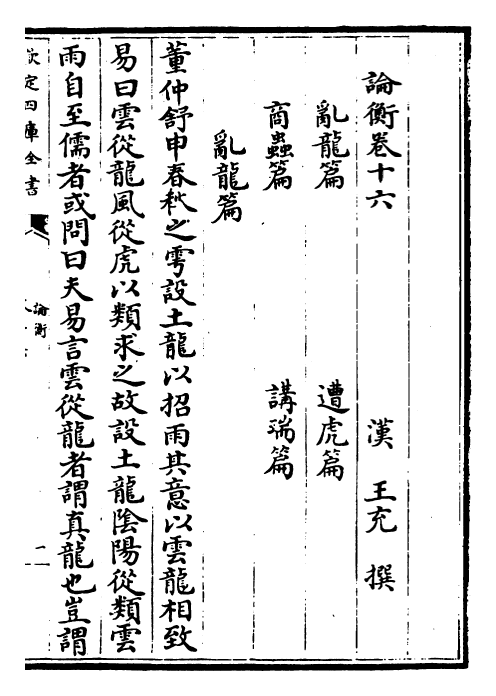 論衡卷十六
漢 王充 撰
亂龍篇 遭虎篇
商蟲篇 講瑞篇
亂龍篇
董仲舒申春秋之雩設土龍以招雨其意以雲龍相致
易曰雲從龍風從虎以類求之故設土龍陰陽從類雲
雨自至儒者或問曰夫易言雲從龍者謂真龍也豈謂
欽定四庫全書
論衡
一